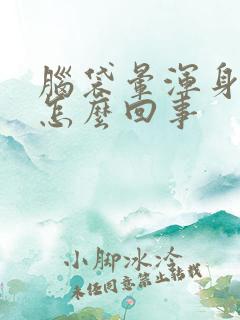 腦袋暈渾身
怎麼回事
小脚冰冷
未经同意禁止转载